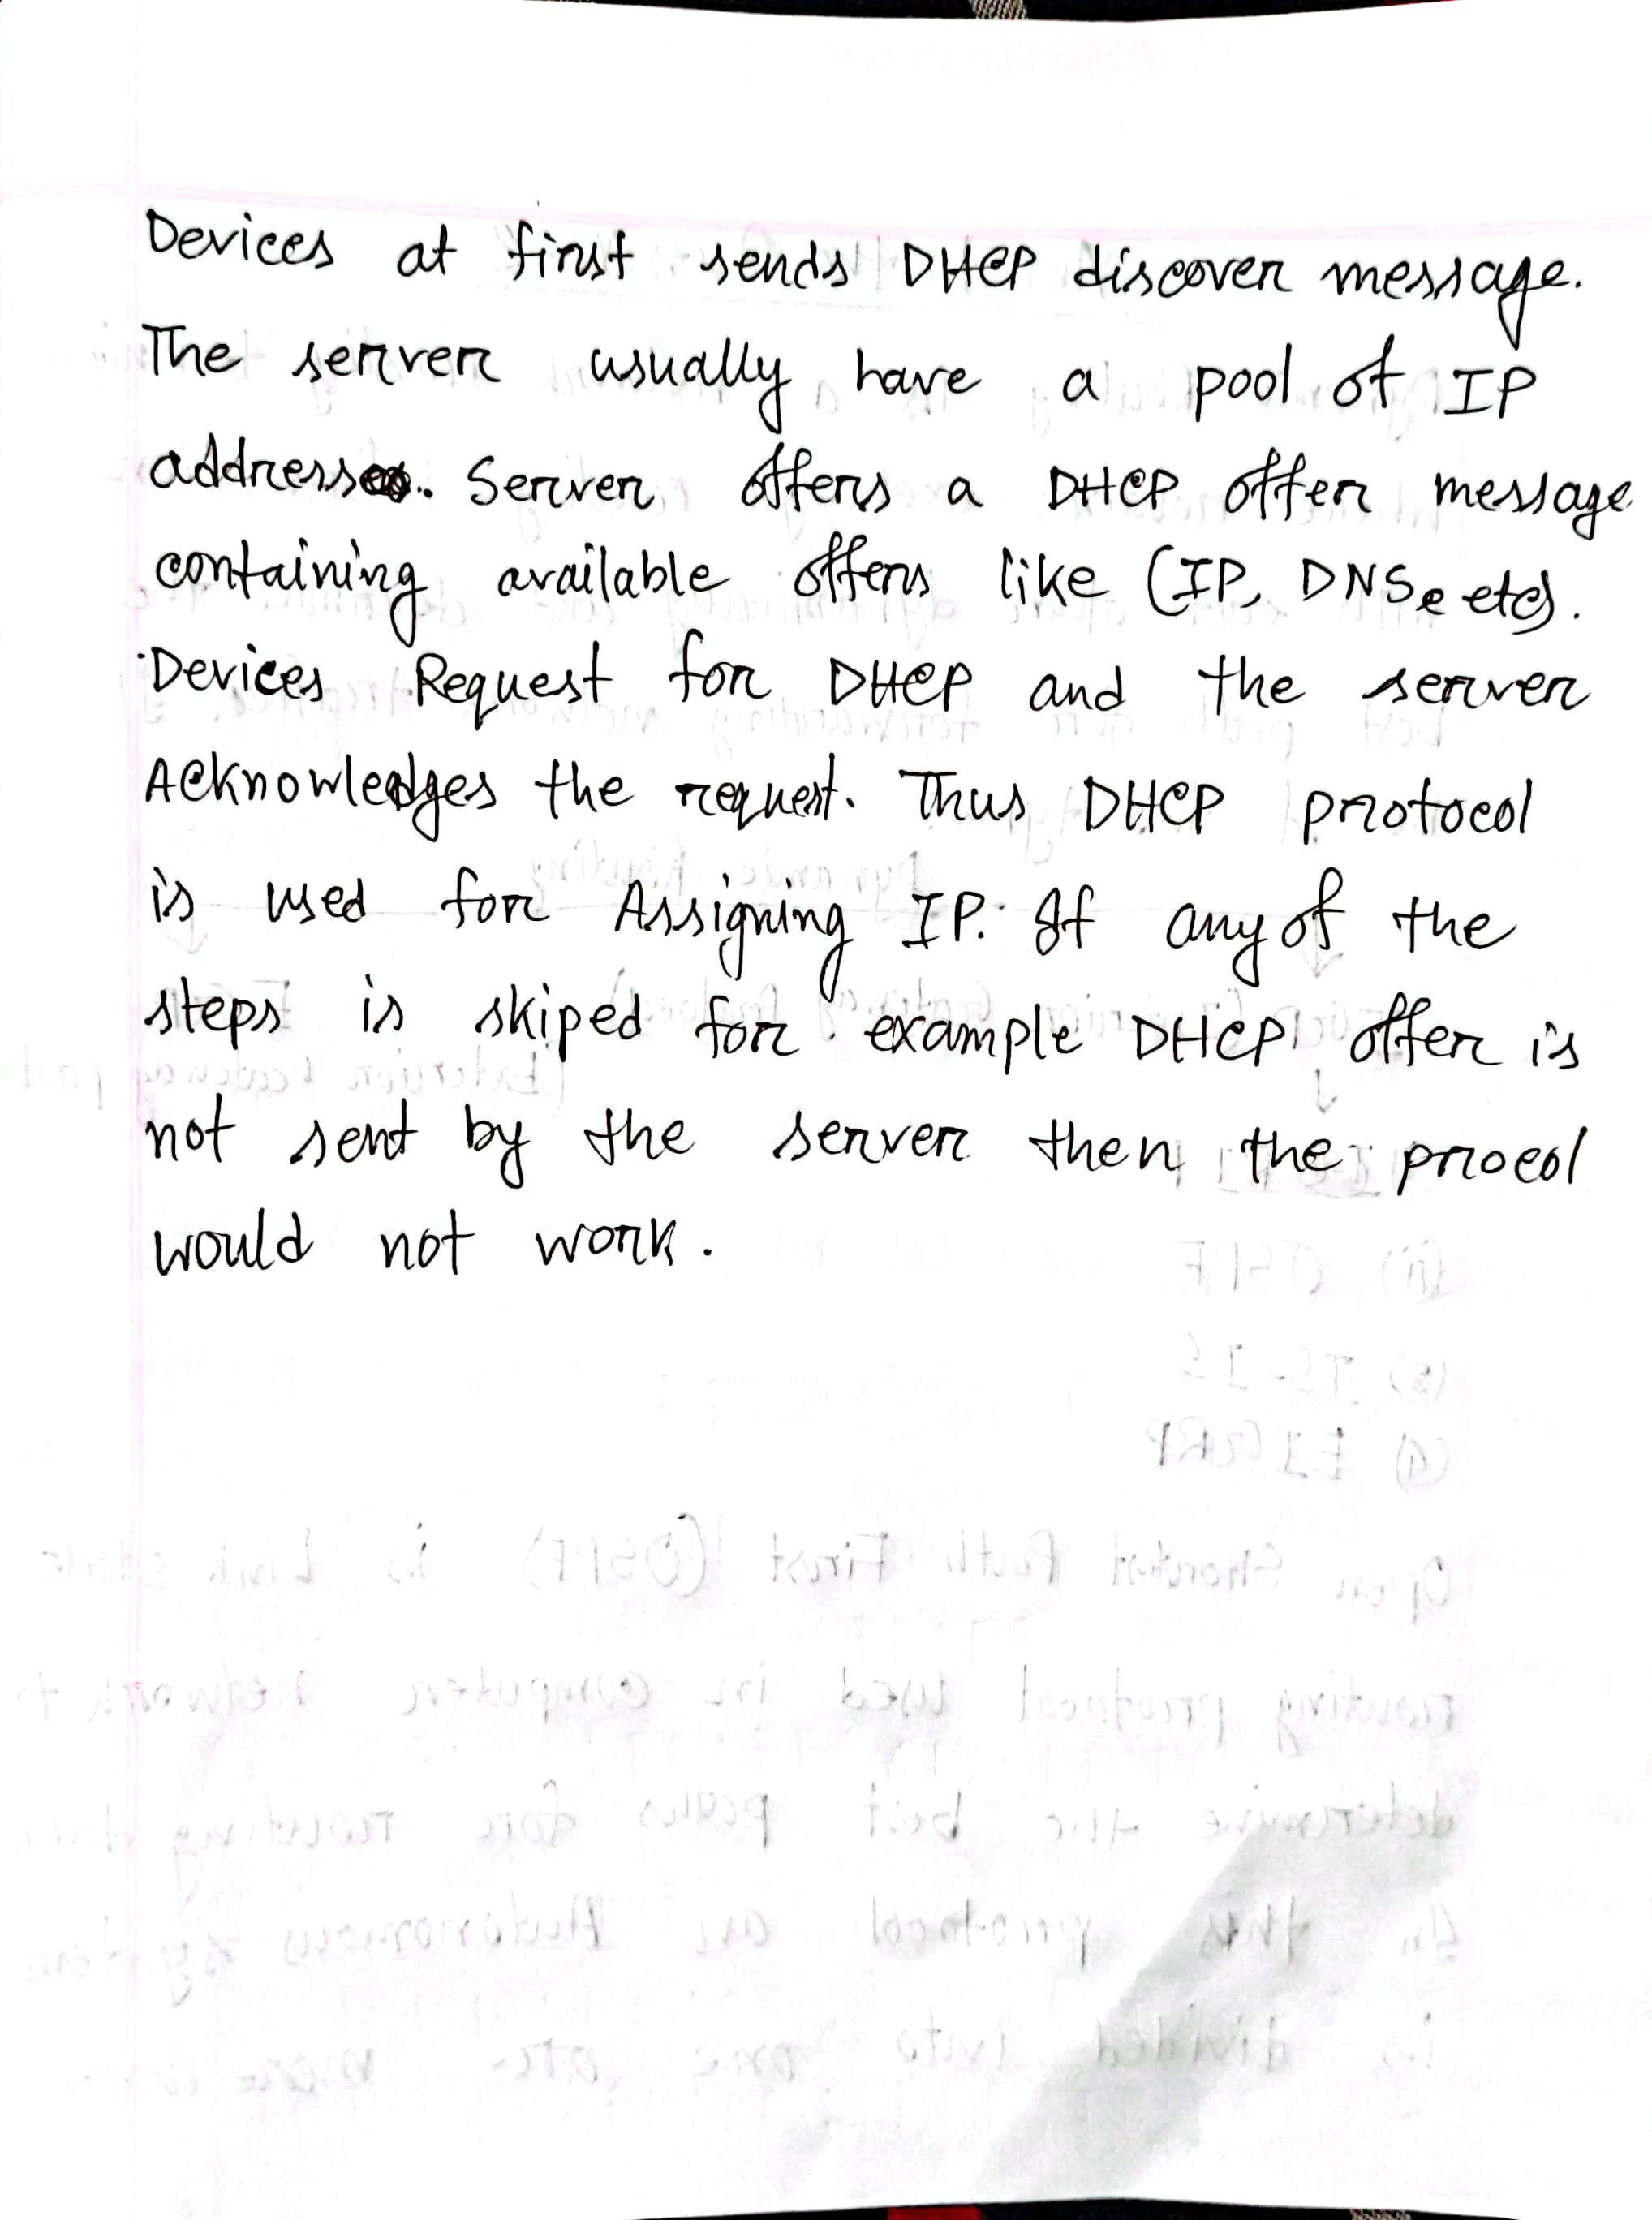 Devices at first sends DHCP discover message.
The server usually have a pool of IP
address. Server offers a DHCP offer message
containing available offers like (IP, DNS, etc).
Devices Request for DHCP and the server
Acknowledges the request. Thus DHCP protocol
is used for Assigning IP. If any of the
steps is skiped for example DHCP offer is
not sent by the server then the procol
would not work.